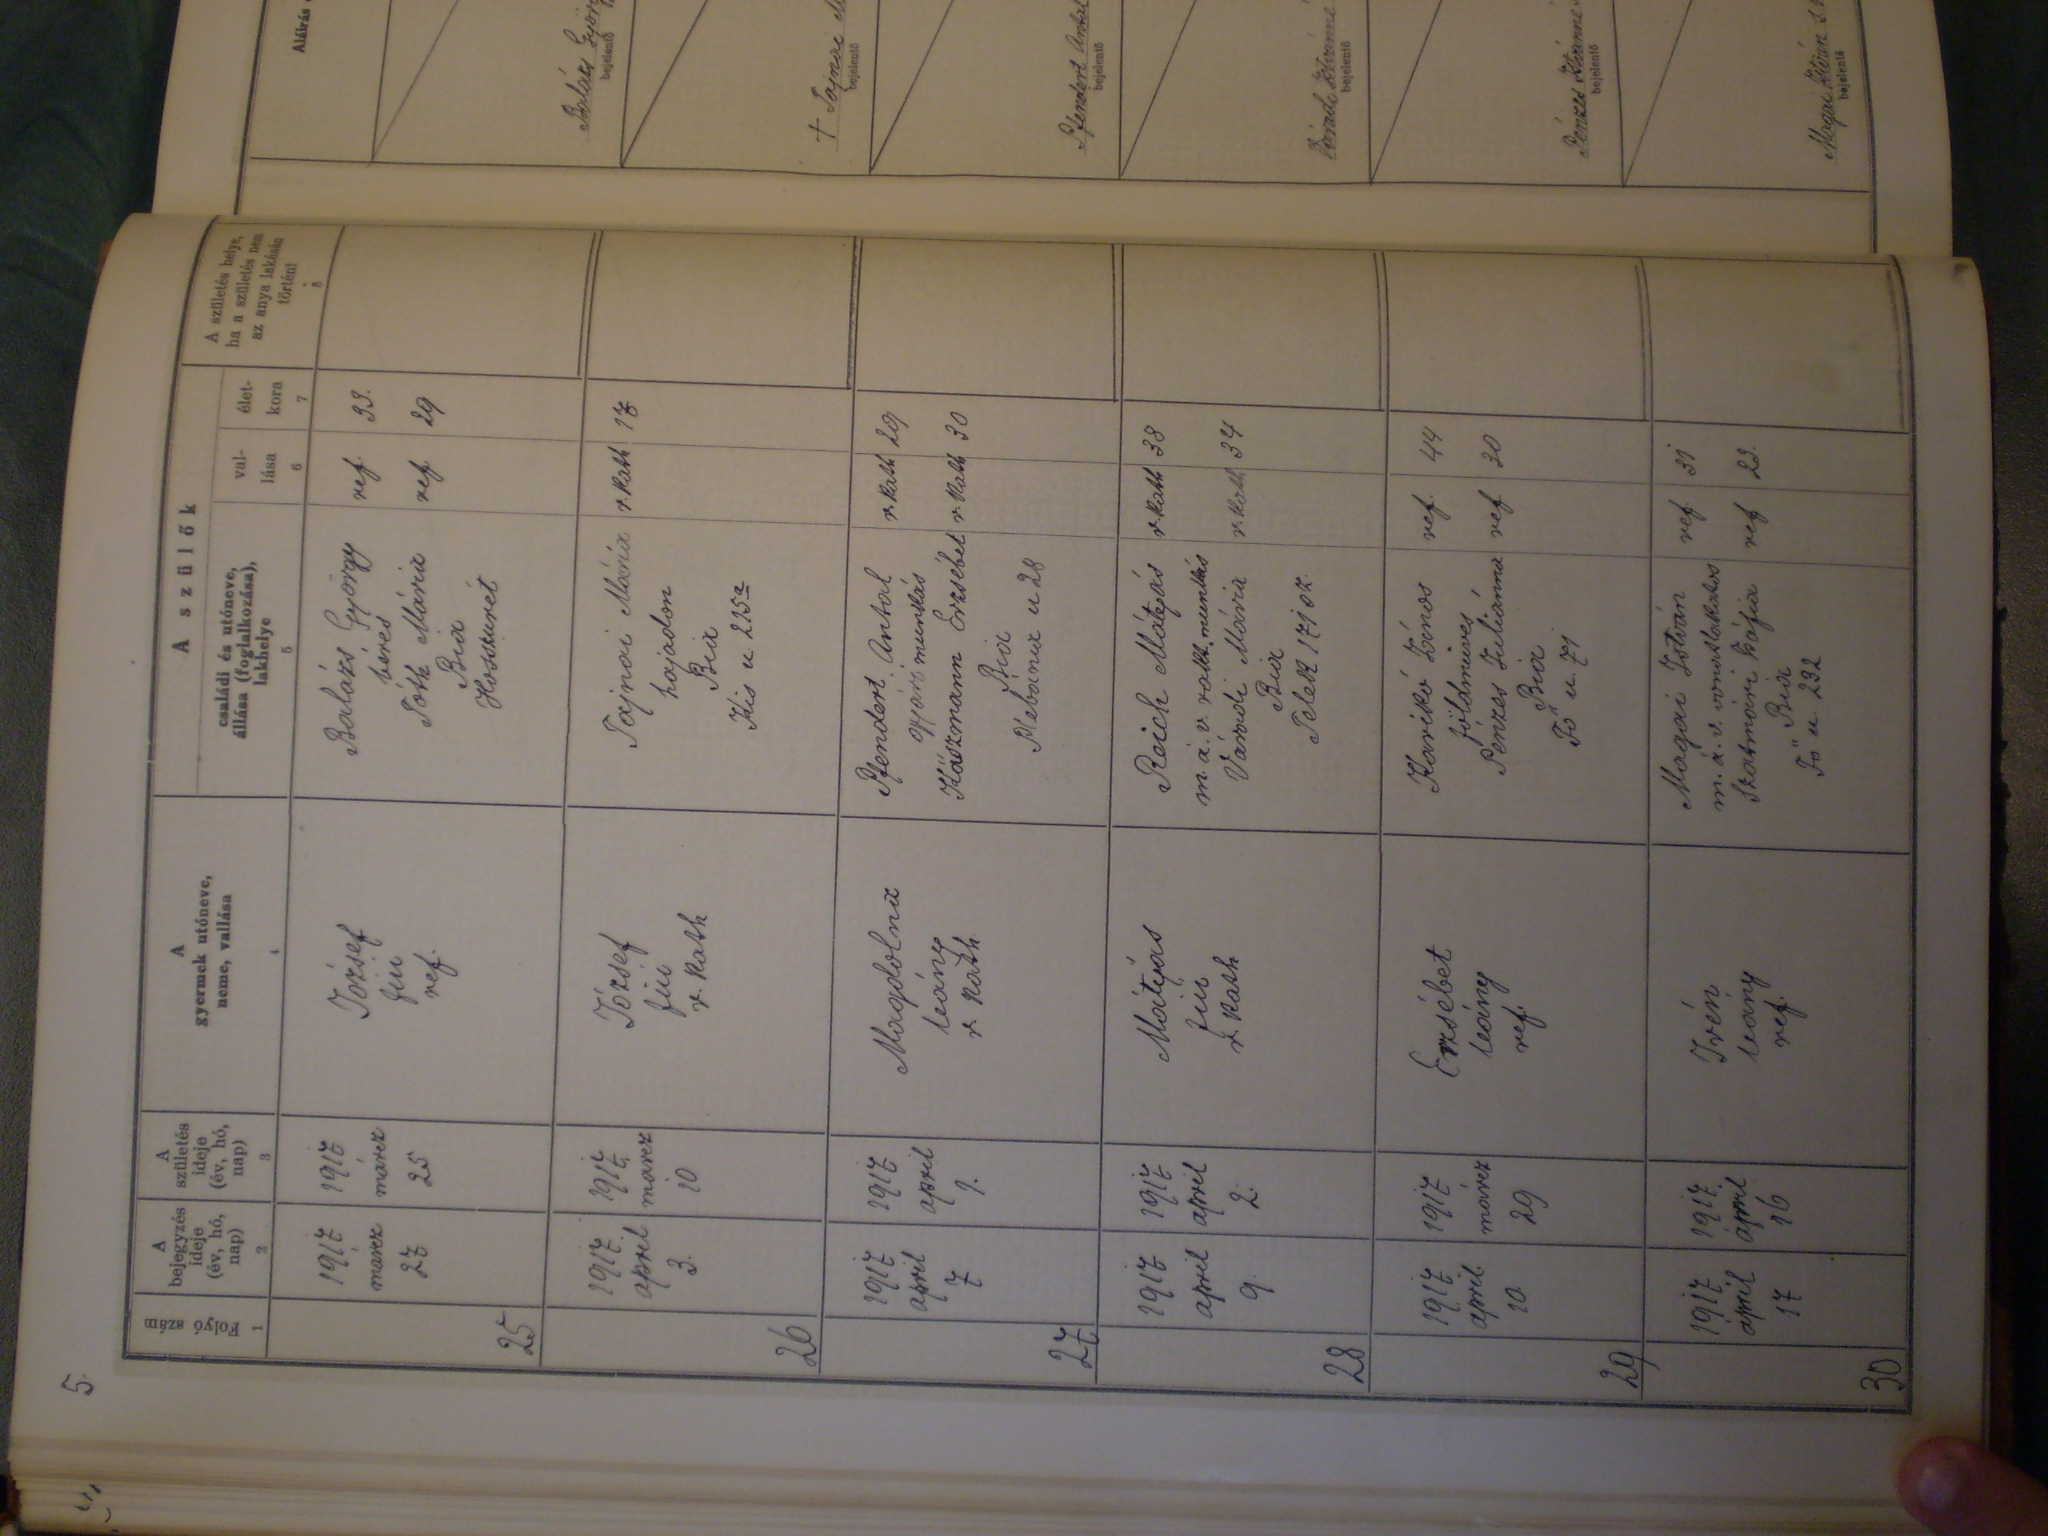 5.
A szülők
Folyó szám
A bejegyzés ideje (év, hó, nap)
A születés ideje (év, hó, nap)
A gyermek utóneve, neme, vallása
családi és utóneve, állása (foglalkozása), lakhelye
val-lása
élet-kora
A születés helye, ha a születés nem az anya lakásán történt
Aláírás
1
2
3
4
5
6
7
8
25
1917 márcz 27
1917 márcz 25
József
fiú
ref.
Balázs György
béres
Tóth Mária
Bia
Hosszurét
ref. 33.
ref. 29
Balázs György
bejelentő
26
1917 april 3.
1917 márcz 10
József
fiú
r. kath
Tajnai Mária
hajadon
Bia
Kis u 215a
r. kath 17
+ Tajnai M
bejelentő
27
1917 april 7
1917 april 1.
Magdolna
leány
r kath.
Pfendert Antal
gyári munkás
Käszmann Erzsébet
Bia
u 28
r kath 29
r kath 30
Pfendert Antal
bejelentő
28
1917 april 9.
1917 april 2.
Mátyás
fiú
r kath
Reich Mátyás
m. á. v. munkás
Váradi Mária
Bia
Telek 171 sz.
r kath 38
r kath 34
Váradi Istvánné
bejelentő
29
1917 april. 10
1917 márcz 29
Erzsébet
leány
ref.
Karikó János
földmíves
Pénzes Juliánna
Bia
Fő u. 71
ref. 44
ref 30
Pénzes Istvánné
bejelentő
30
1917 april 17
1917 április 16
Irén
leány
ref.
Magai István
m. á. v.
Szatmári Zsófia
Bia
Fő u. 232
ref 31
ref 23.
Magai István
bejelentő